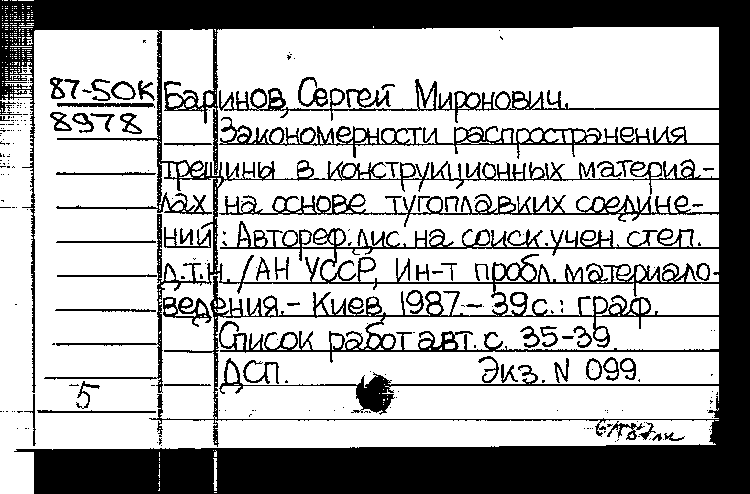 87-5ОК Баринов, Сергей Миронович.
8978
Закономерности распространения
трещины в конструкционных материа-
лах на основе тугоплавких соедине-
ний: Автореф. дис. на соиск. учен. степ.
д.т.н. / АН УССР, Ин-т пробл. материало-
ведения. – Киев, 1987. – 39 с. : граф.
Список работ авт. с. 35-39.
ДСП. Экз. N 099.
5